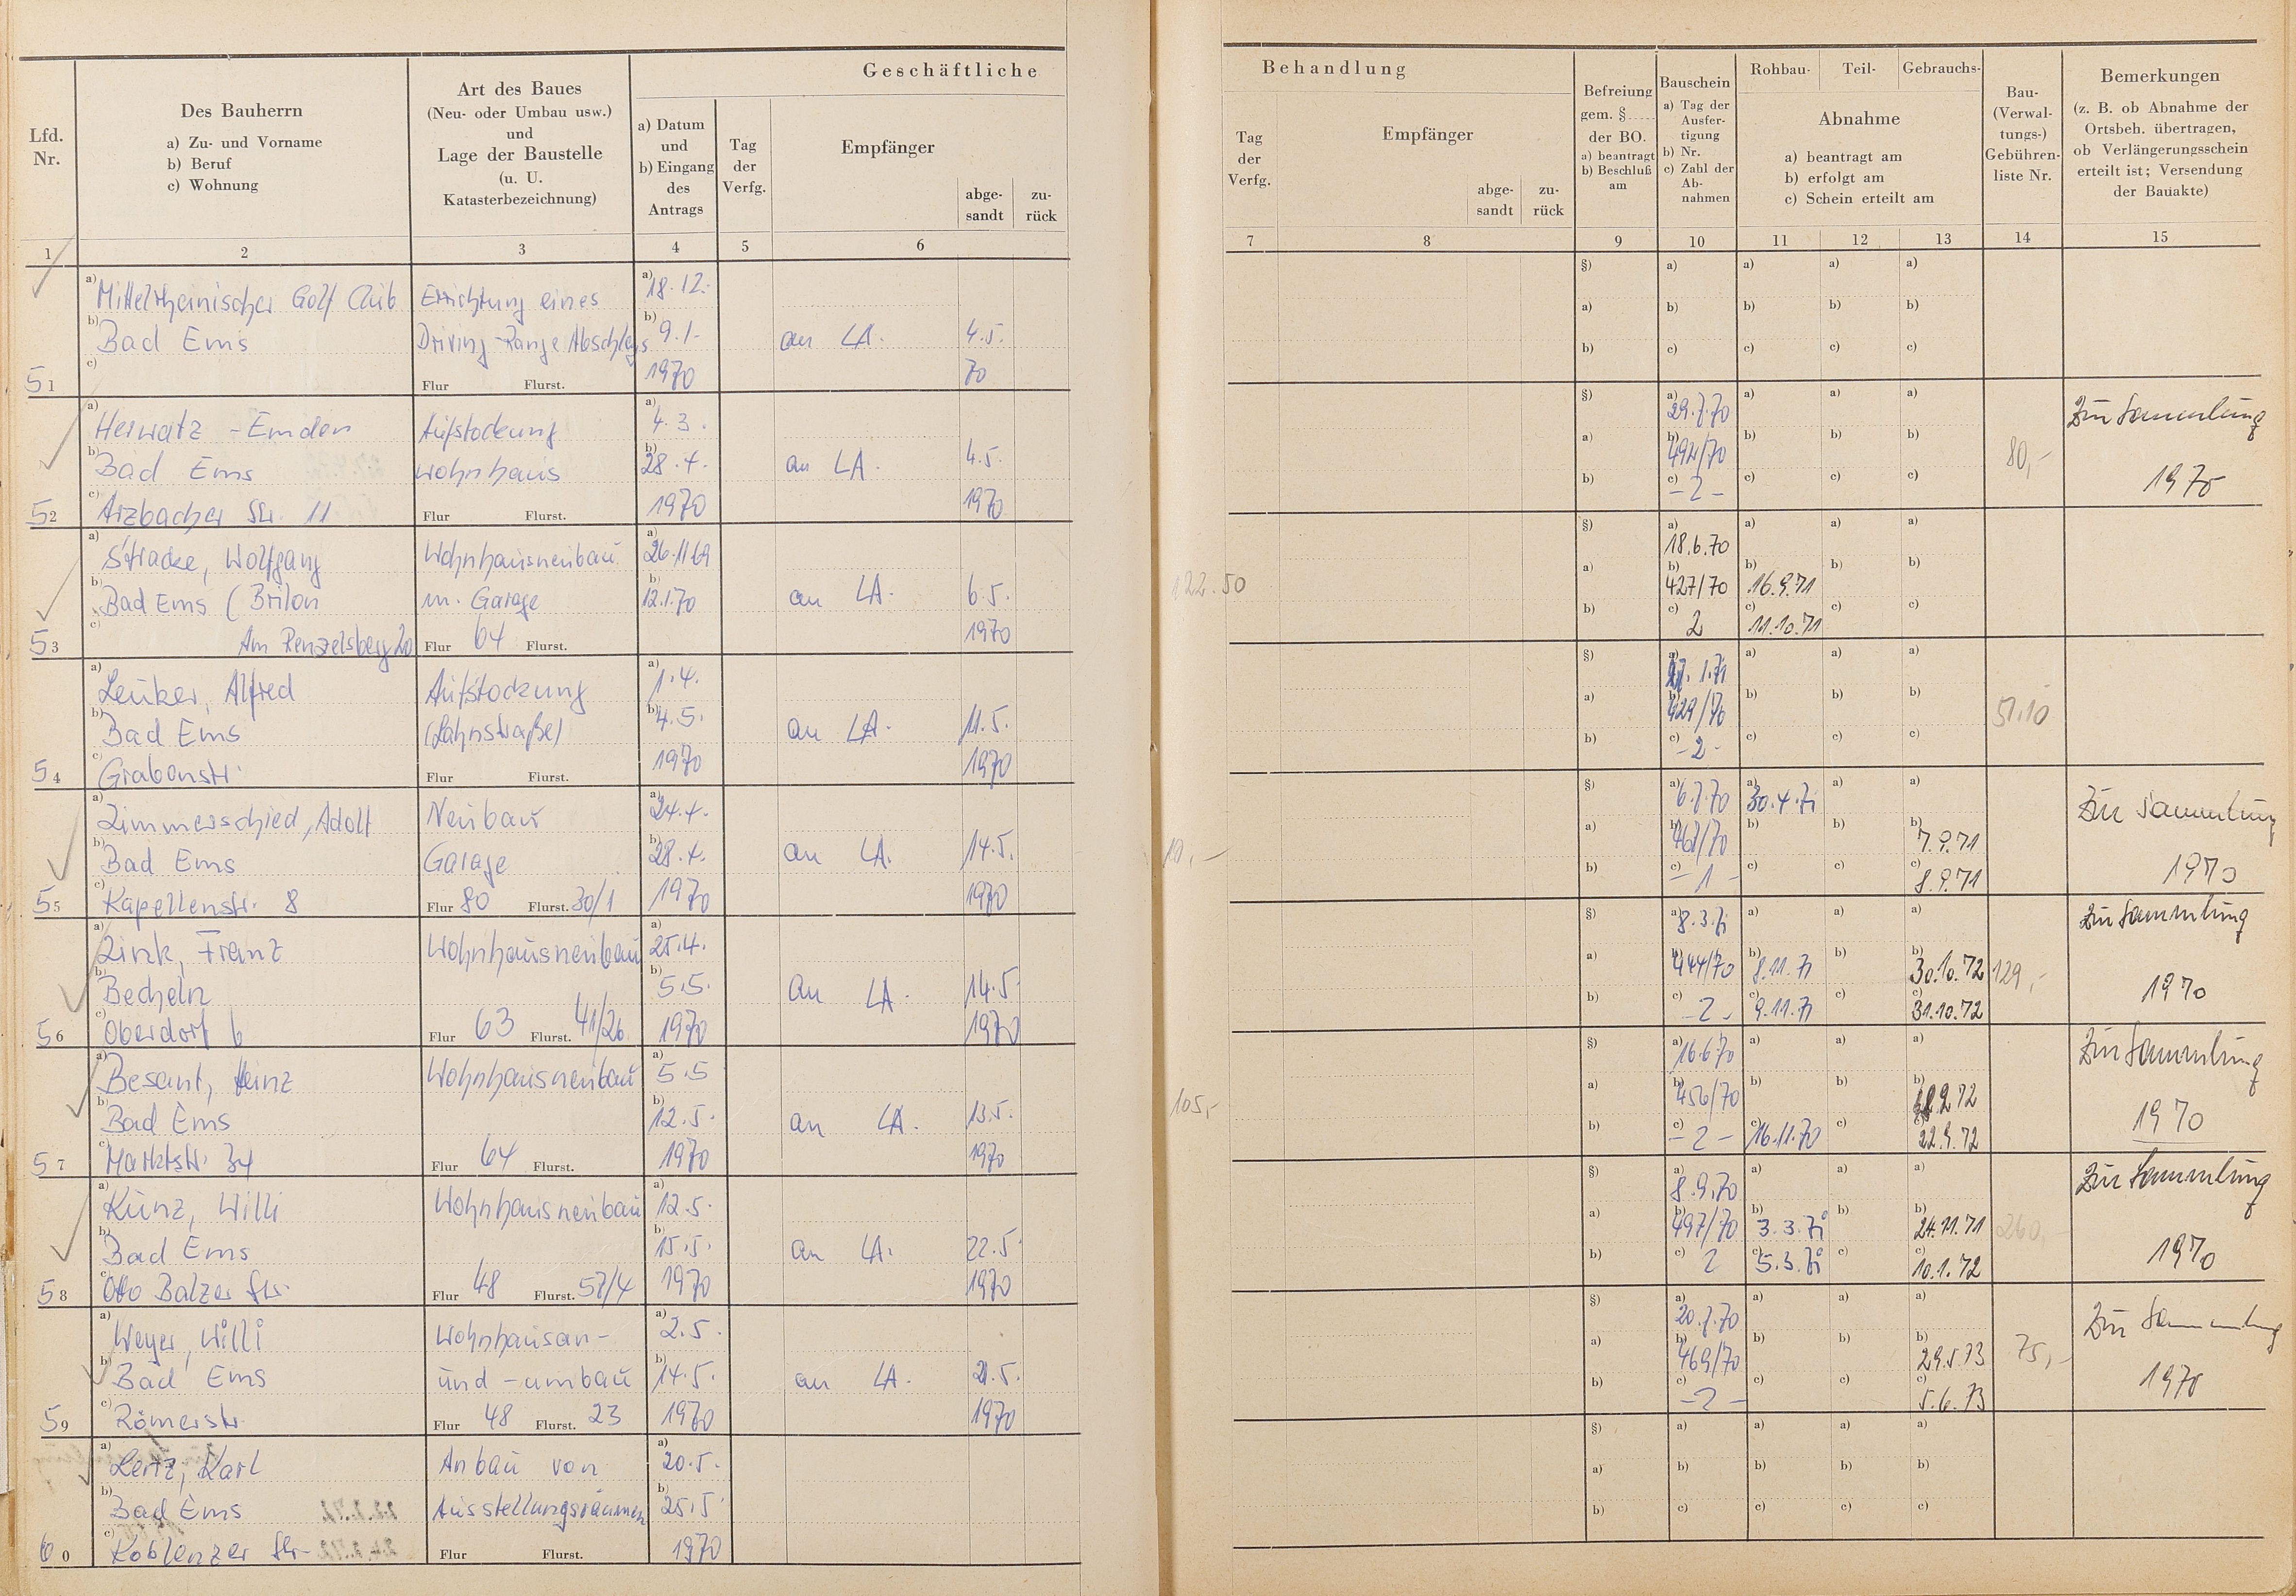 Geschäftliche
Behandlung
Lfd. Nr.
Des Bauherrn
a) Zu- und Vorname
b) Beruf
c) Wohnung
Art des Baues
(Neu- oder Umbau usw.)
und
Lage der Baustelle
(u. U.
Katasterbezeichnung)
a) Datum
und
b) Eingang
des
Antrags
Tag
der
Verfg.
Empfänger
abge-
sandt
zu-
rück
Tag
der
Verfg.
Empfänger
abge-
sandt
zu-
rück
Befreiung
gem. §
der BO.
a) beantragt
b) Beschluß
am
Bauschein
a) Tag der
Ausfer-
tigung
b) Nr.
c) Zahl der
Ab-
nahmen
Rohbau- Teil- Gebrauchs-
Abnahme
a) beantragt am
b) erfolgt am
c) Schein erteilt am
Bau-
(Verwal-
tungs-)
Gebühren-
liste Nr.
Bemerkungen
(z. B. ob Abnahme der
Ortsbeh. übertragen,
ob Verlängerungsschein
erteilt ist; Versendung
der Bauakte)
1 2 3 4 5 6 7 8 9 10 11 12 13 14 15
a) Mittelrheinischer Golf Club Errichtung eines a) 18.12. §) a) a) a) a)
b) Bad Ems Driving-Range Abschlags b) 9.1. an LA. 4.5. a) b) b) b) b)
51 c) Flur Flurst. 1970 70 b) c) c) c) c)
a) Herwatz - Emden Aufstockung a) 4.3. §) a) 29.7.70 a) a) a) Zur Sammlung
b) Bad Ems Wohnhaus b) 28.4. an LA. 4.5. a) b) 492/70 b) b) b) 80,-
52 c) Arzbacher Str. 11 Flur Flurst. 1970 1970 b) c) -2- c) c) c) 1970
a) Stracke, Wolfgang Wohnhausneubau a) 26.11.69 §) a) 18.6.70 a) a) a)
b) Bad Ems (Brilon m. Garage b) 12.1.70 an LA. 6.5. 122.50 a) b) 427/70 b) 16.9.71 b) b)
53 c) Am Renzelsberg 20 Flur 64 Flurst. 1970 b) c) 2 c) 11.10.71 c) c)
a) Leuker, Alfred Aufstockung a) 1.4. §) a) 27.1.71 a) a) a)
b) Bad Ems (Lahnstraße) b) 4.5. an LA. 11.5. a) b) 429/70 b) b) b) 51.10
54 c) Grabenstr. Flur Flurst. 1970 1970 b) c) -2- c) c) c)
a) Zimmerschied, Adolf Neubau a) 24.4. §) a) 6.7.70 a) 30.4.71 a) a) Zur Sammlung
b) Bad Ems Garage b) 28.4. an LA. 14.5. 10,- a) b) 467/70 b) b) b) 7.9.71
55 c) Kapellenstr. 8 Flur 80 Flurst. 30/1 1970 1970 b) c) -1- c) c) c) 8.9.71 1970
a) Zink, Franz Wohnhausneubau a) 25.4. §) a) 8.3.71 a) a) a) Zur Sammlung
b) Becheln b) 5.5. an LA. 14.5. a) b) 444/70 b) 8.11.71 b) b) 30.10.72 129,-
56 c) Oberdorf 6 Flur 63 Flurst. 41/26 1970 1970 b) c) -2- c) 9.11.71 c) c) 31.10.72 1970
a) Besant, Heinz Wohnhausneubau a) 5.5 §) a) 16.6.70 a) a) a) Zur Sammlung
b) Bad Ems b) 12.5. an LA. 13.5. 105,- a) b) 456/70 b) b) b)
57 c) Marktstr. 34 Flur 64 Flurst. 1970 1970 b) c) -2- c) 16.11.70 c) c) 22.9.72 1970
a) Kunz, Willi Wohnhausneubau a) 12.5. §) a) 8.9.70 a) a) a) Zur Sammlung
b) Bad Ems b) 15.5. an LA. 22.5. a) b) 497/70 b) 3.3.71 b) b) 24.11.71 260
58 c) Otto Balzer Str. Flur 48 Flurst. 57/4 1970 1970 b) c) 2 c) 5.3.71 c) c) 10.1.72 1970
a) Weyer, Willi Wohnhausan- a) 2.5. §) a) 20.7.70 a) a) a) Zur Sammlung
b) Bad Ems und -umbau b) 14.5. an LA. 21.5. a) b) 469/70 b) b) b) 29.5.73 75,-
59 c) Römerstr. Flur 48 Flurst. 23 1970 1970 b) c) -2- c) c) c) 5.6.73 1970
a) Lertz, Karl Anbau von a) 20.5. §) a) a) a) a)
b) Bad Ems Ausstellungsräumen b) 25.5. a) b) b) b) b)
60 c) Koblenzer Str. Flur Flurst. 1970 b) c) c) c) c)